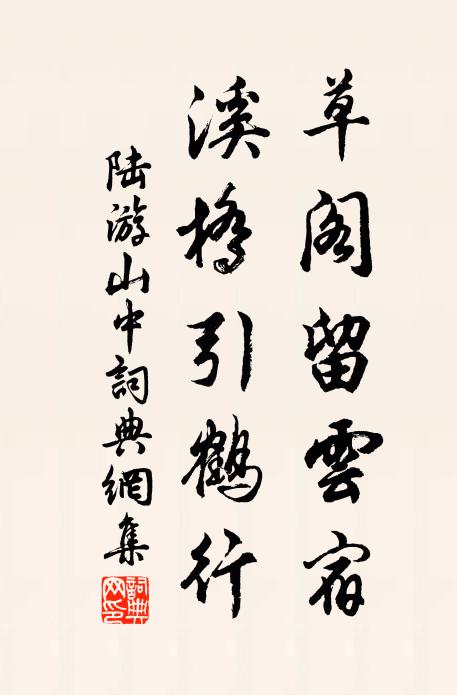 草阁留雲宿
溪橋引鶴行
陆游山中詞典網集
詞典网印